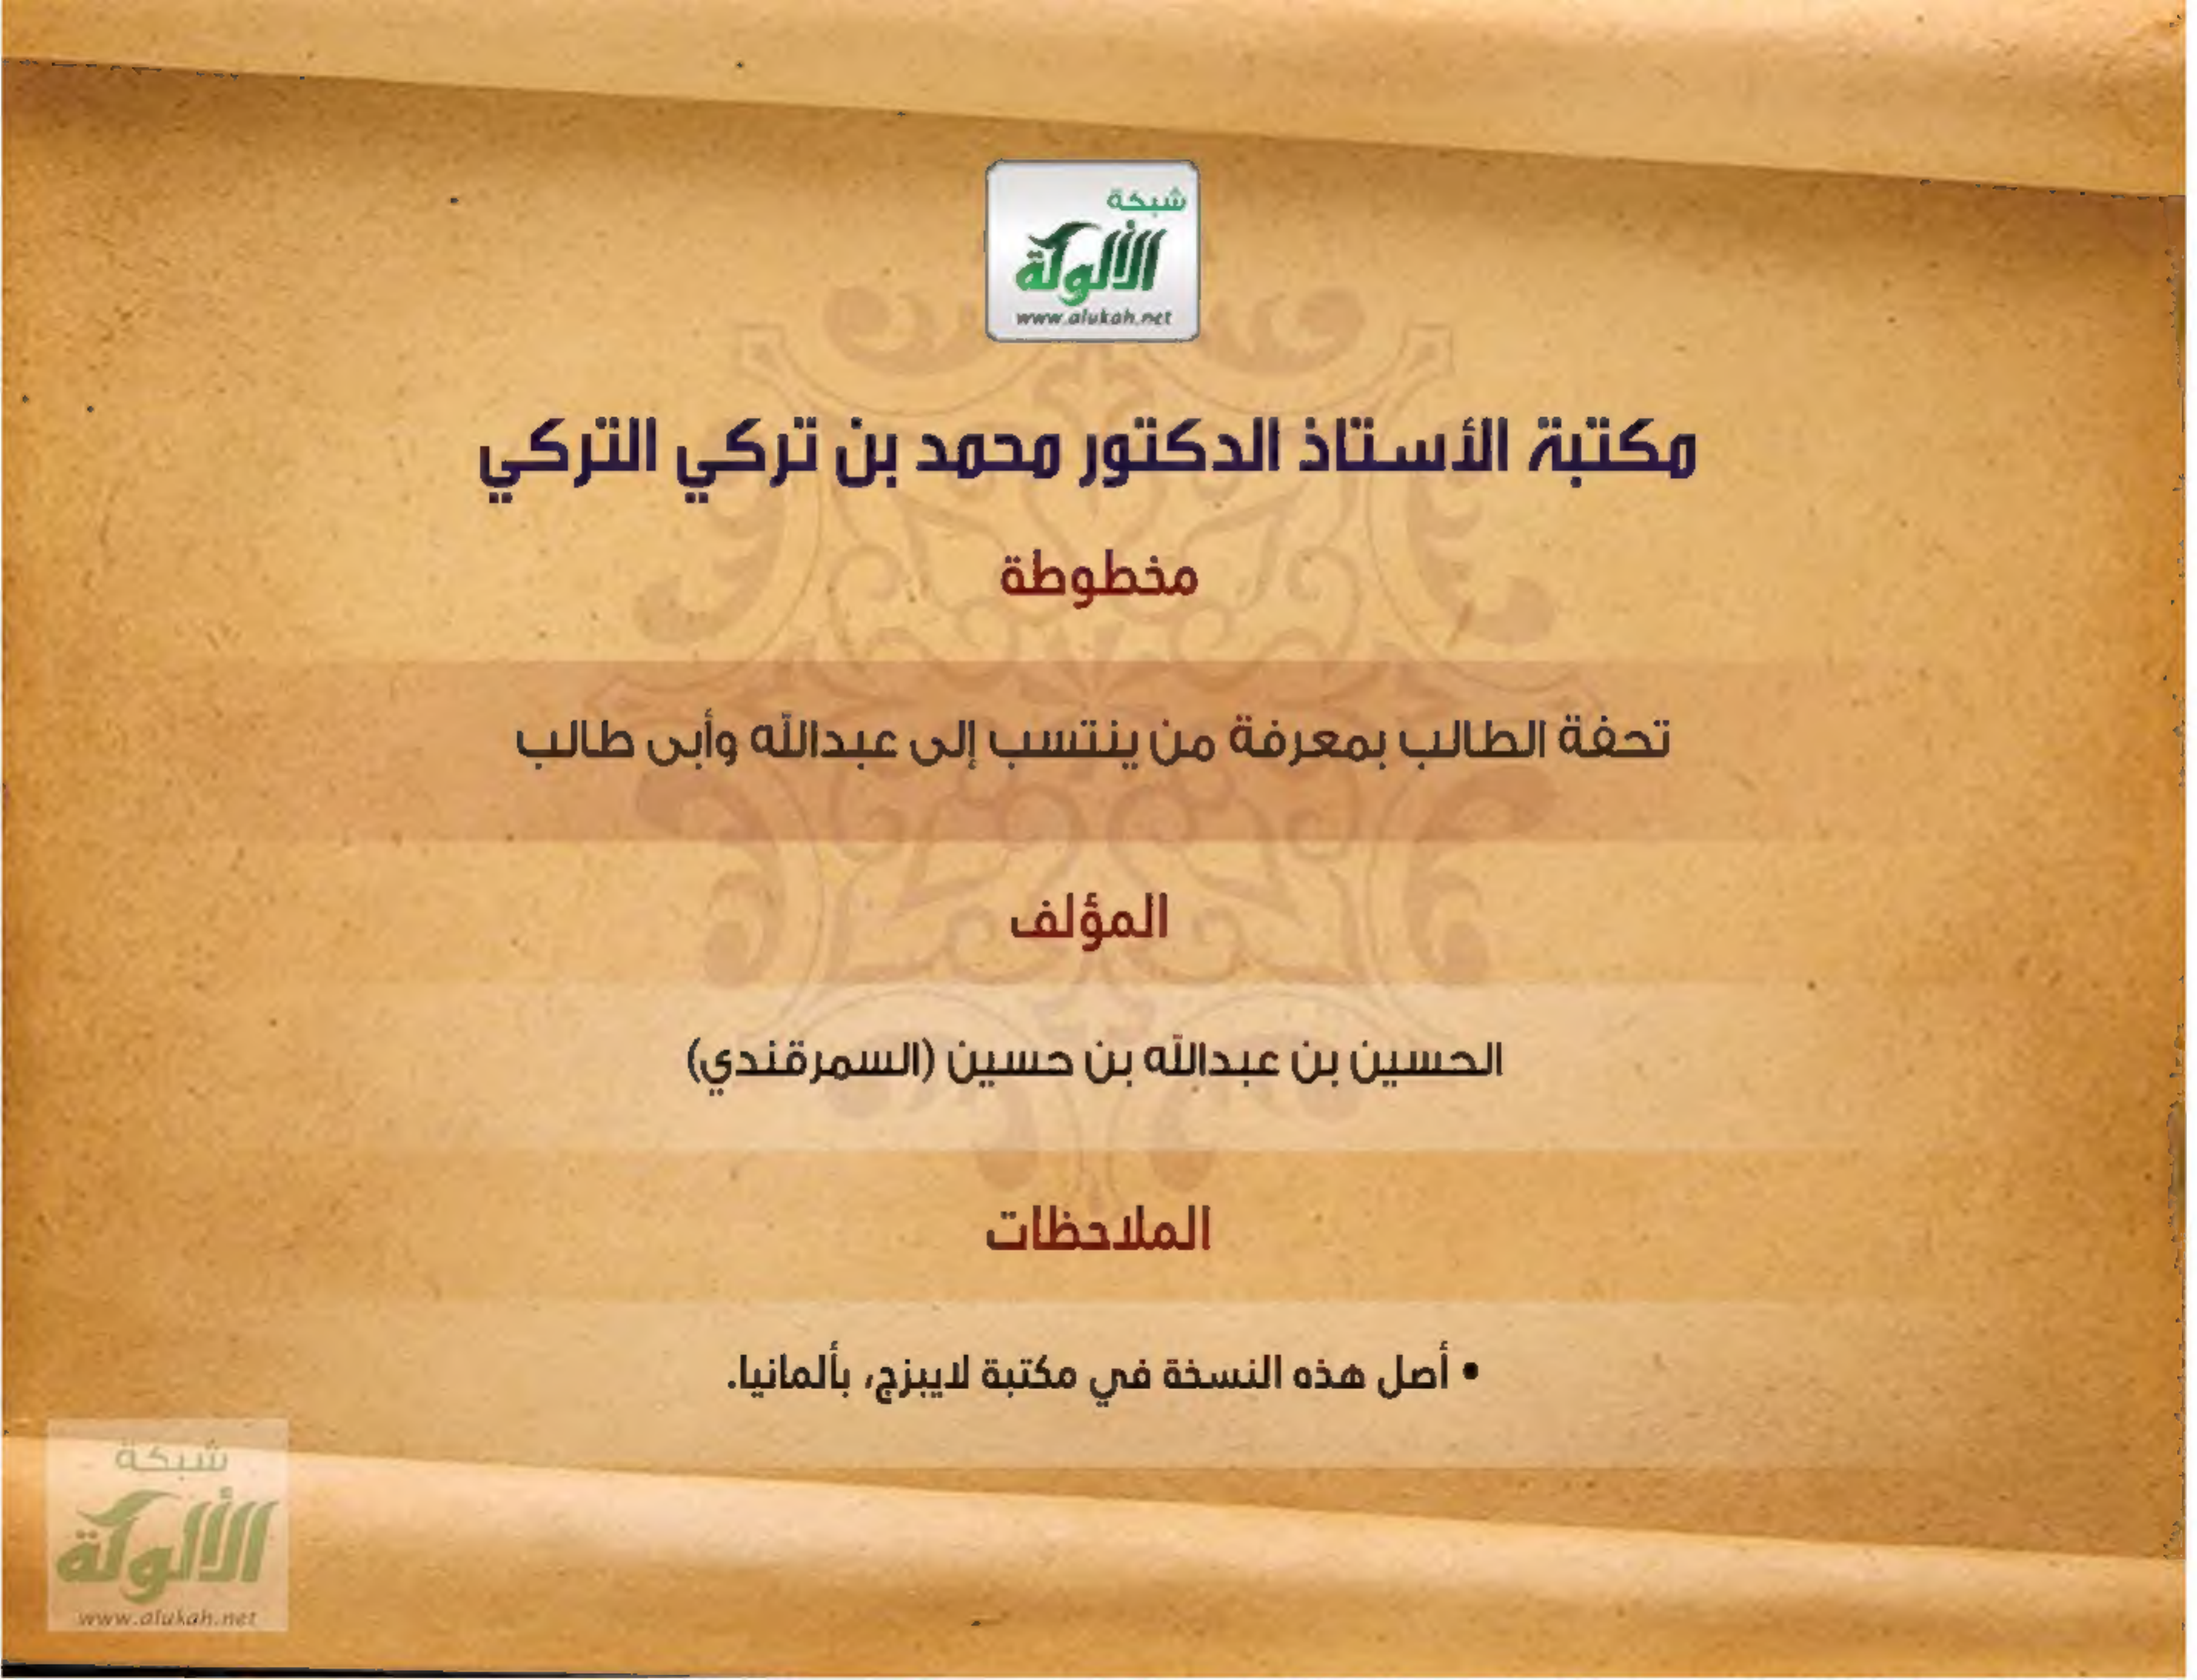 شبكة
الألوكة
www.alukah.net
مكتبة الأستاذ الدكتور محمد بن تركي التركي
مخطوطة
تحفة الطالب بمعرفة من ينتسب إلى عبدالله وأبى طالب
المؤلف
الحسين بن عبدالله بن حسين (السمرقندي)
الملاحظات
• أصل هذه النسخة في مكتبة لايبزج، بألمانيا.
شبكة
الألوكة
www.alukah.net